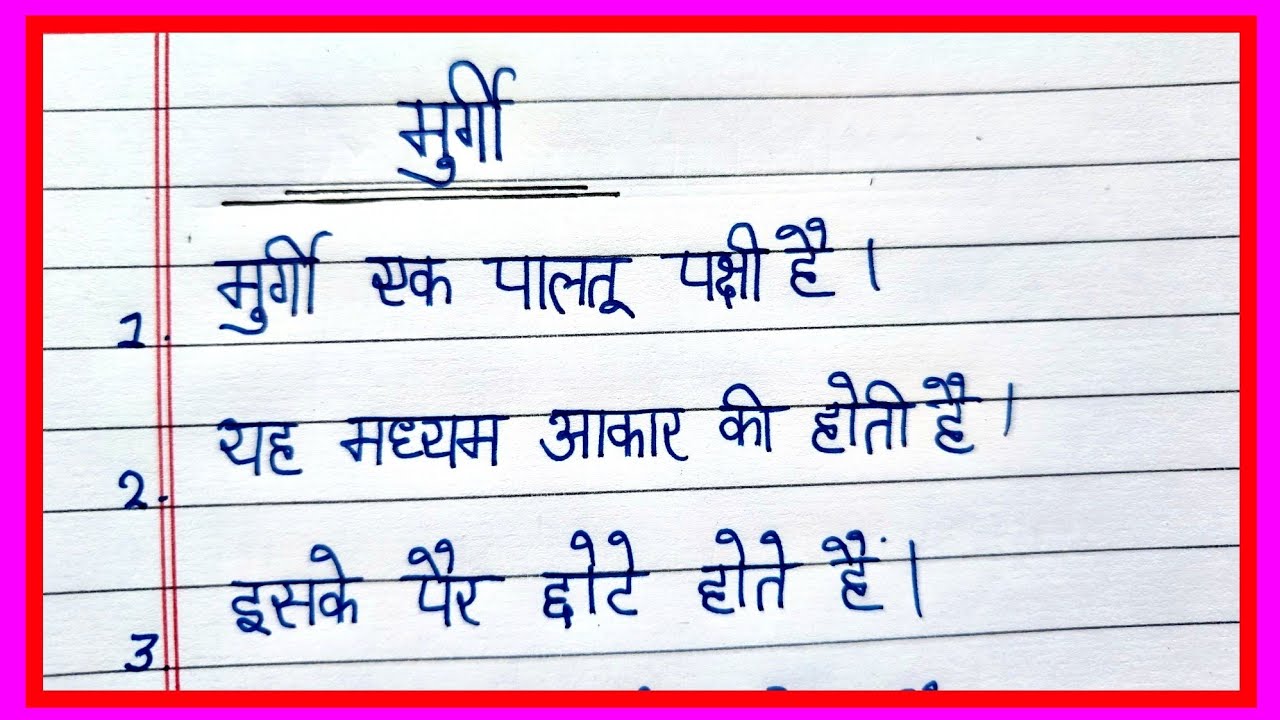 मुर्गी
1. मुर्गी एक पालतू पक्षी है।
2. यह मध्यम आकार की होती है।
3 इसके पैर छोटे होते हैं।